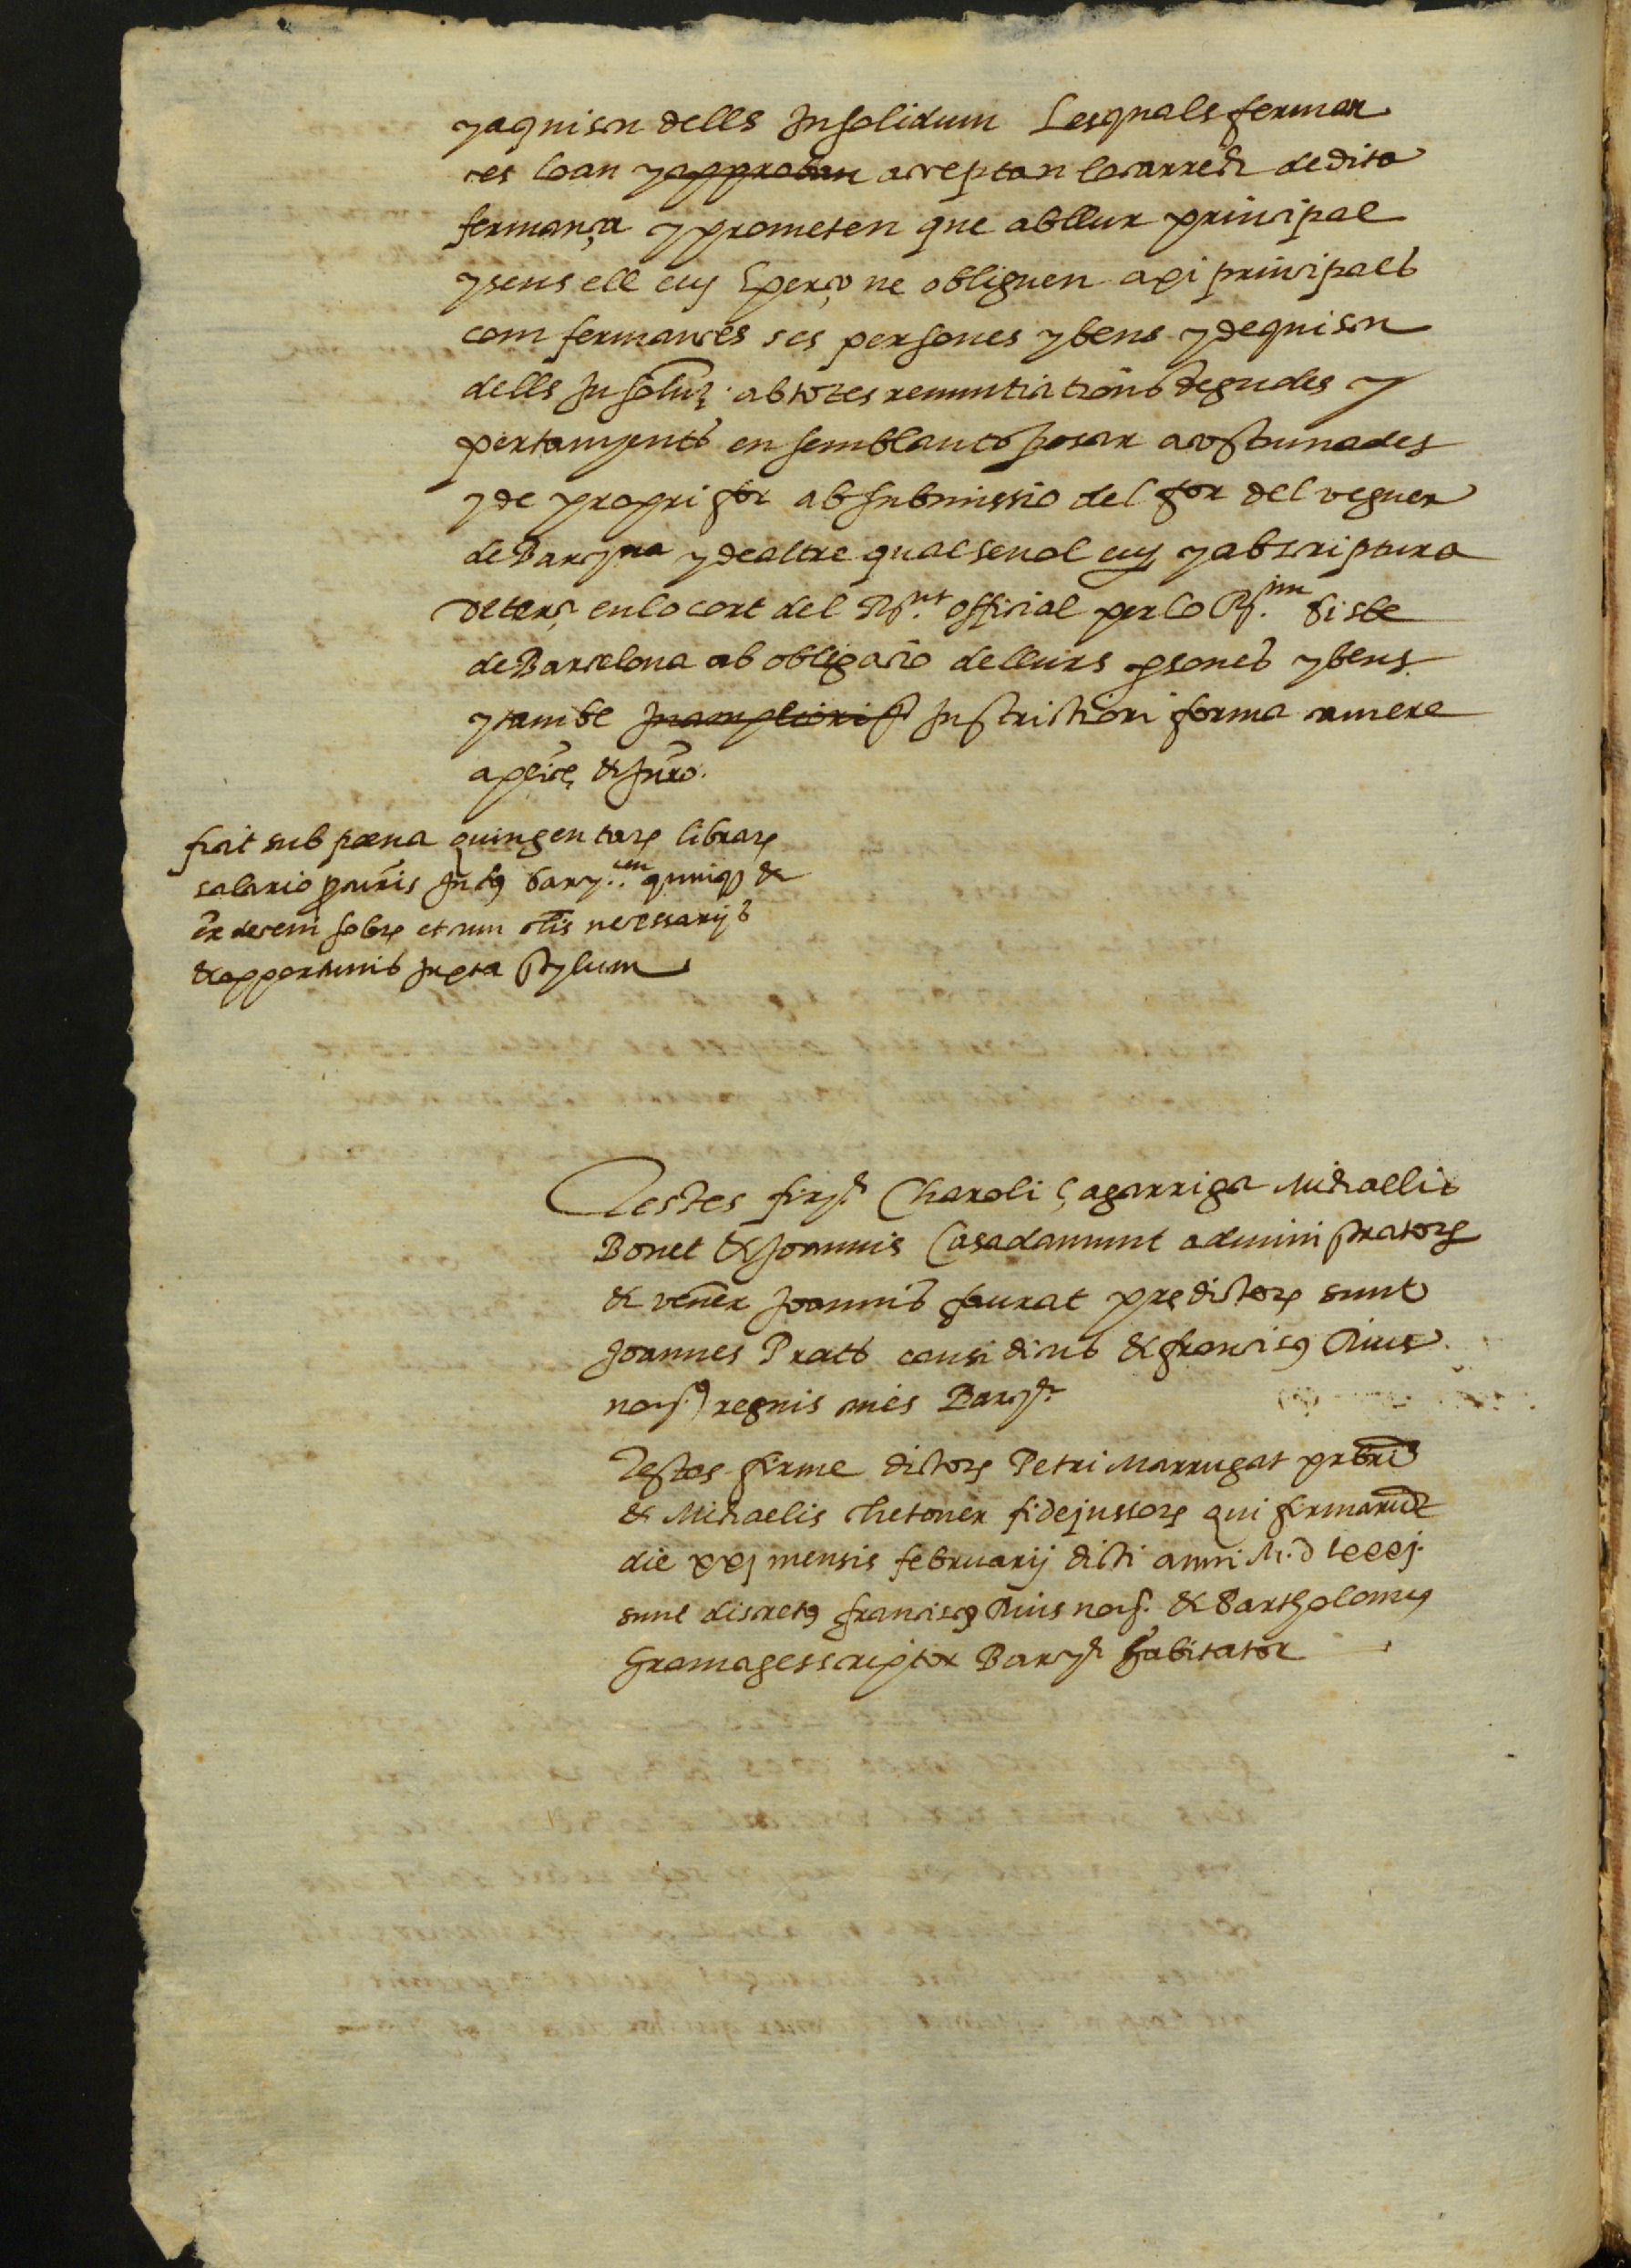 y a quiscun dells Insolidum Lesquals ferman
ces loan y approban acceptan lo carrech de dita
fermança y prometen que ab llur principal
y sens ell etc. E per ço ne obliguen axi principals
com fermances ses persones y bens y de quiscun
dells Insolm. ab totes renuntiations degudes y
pertanyents en semblants posar acostumades
y de propri for ab submissio del for del veguer
de Barña y de altre qualsevol etc. y ab scriptura
de terç en la cort del Rnt. official per lo Rm. Bisbe
de Barcelona ab obligacio de llurs psones y bens
y tambe In amplioris In strictiori forma camere
aplice & Juro.
fiat sub pœna quingentarum librarum
salario procuris Intus Barne. quinque &
ex decem solrum et cum aliis necessarijs
& opportunis Juxta stylum
Testes firme Charoli çagarriga Michaellis
Bonet & Joannis Casadamunt administratorum
& vener Joannis faurat predictorum sunt
Joannes Prats causidicus & franciscus Rius
nots. regnis cives Barne
Testes firme dictorum Petri Marrugat prbri
& Michaelis thetoner fidejussorum qui firmarunt
die xxj mensis februarij dicti anni M.D lxxxj.
sunt discretus franciscus Rius nots. & Bartholomeus
gramages scriptor Barne habitator